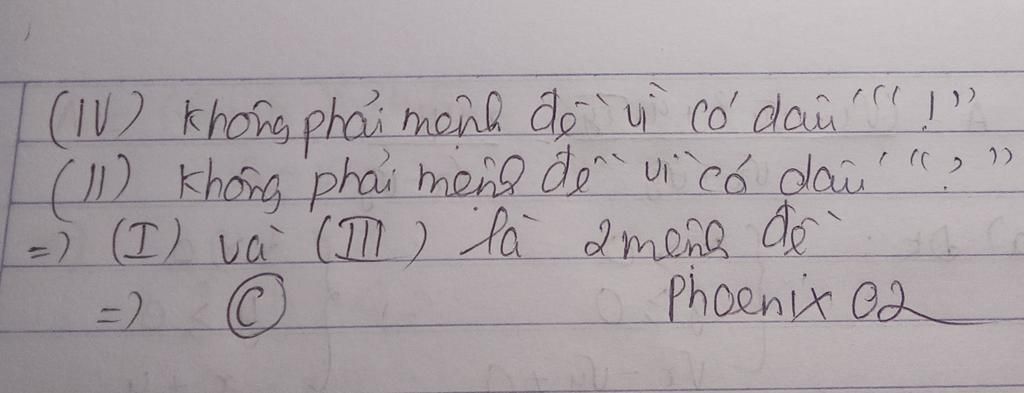 (IV) không phải mệnh đề vì có dấu "!"
(II) không phải mệnh đề vì có dấu "?"
=) (I) và (III) là 2 mệnh đề
=) C Phoenix 02